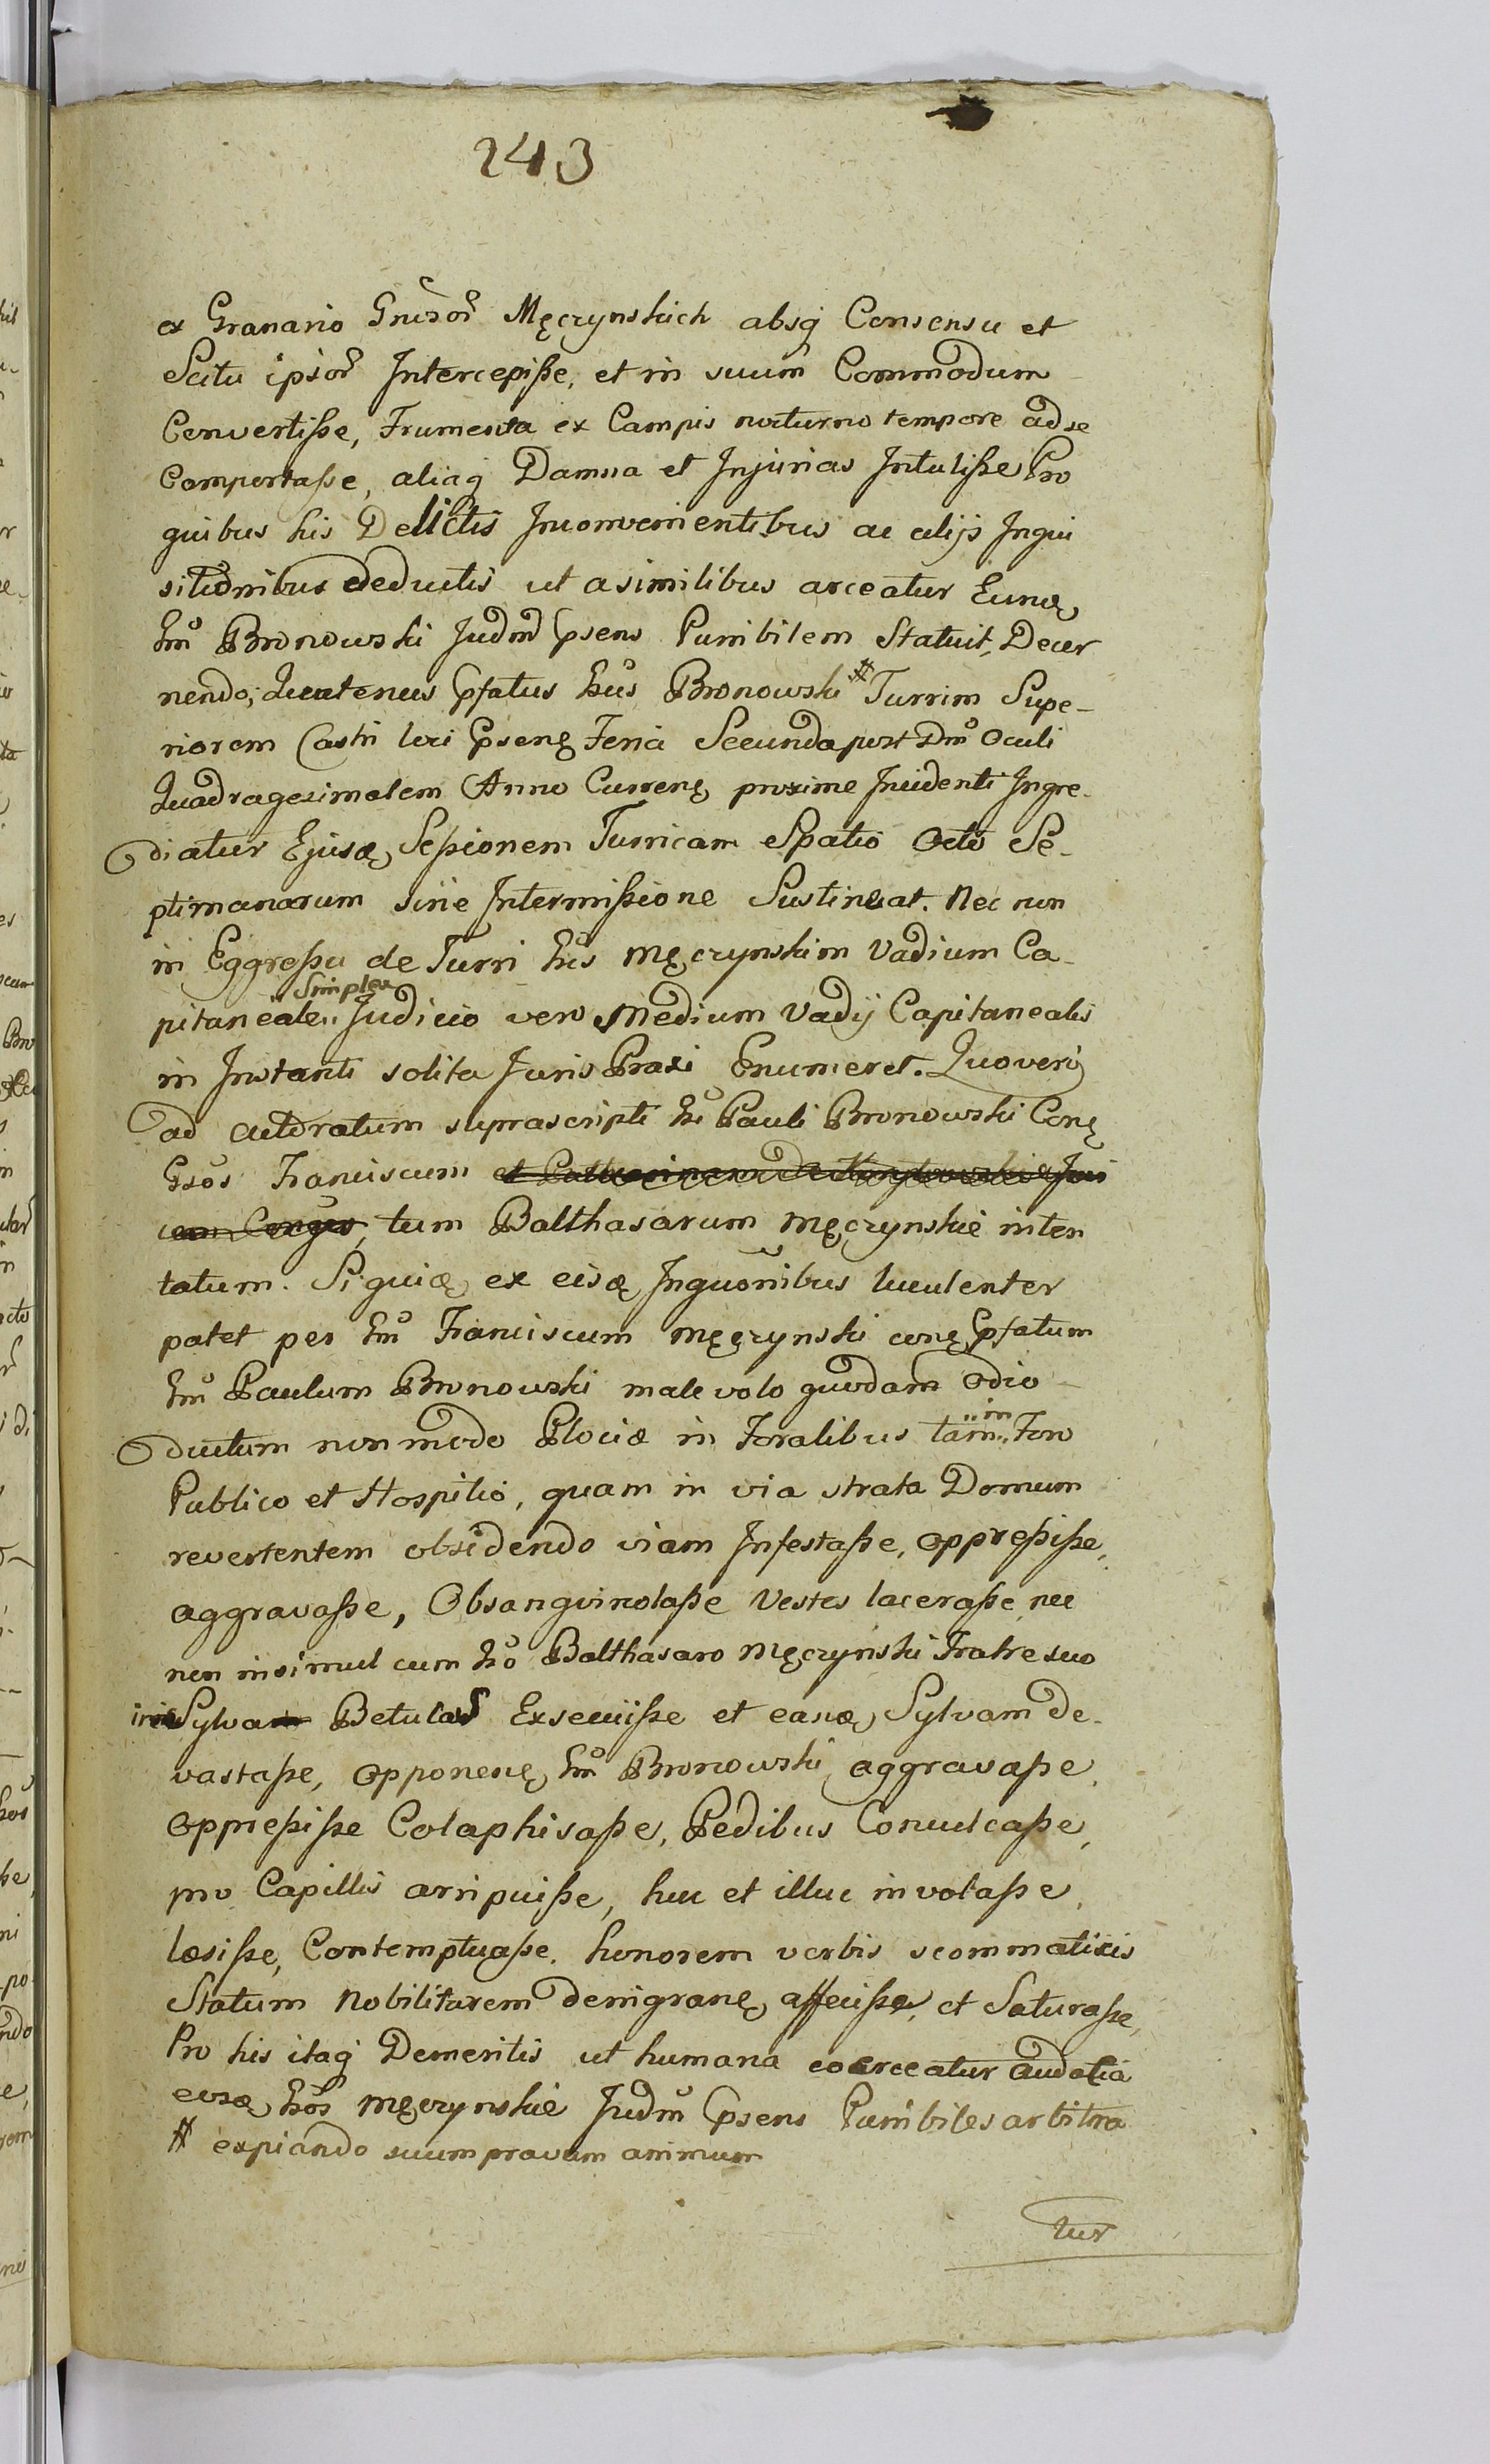 243
ex Granario Gnrõr̃ Męczynskich absq Consensu et
Scitu ipsor̃ Intercepiße, et in suum Commodum
Convertiße, Frumenta ex Campis nocturno tempore ad se
Comportaße, aliaq Damna et Injurias Intuliße Pro
quibus his Delictis Inconvenientibus ac alijs Inqui
sitionibus deductis ut a similibus arceatur Eund
Bronowski Judm Psens Punibilem Statuit, Decer
nendo; Quatenus Pfatus Bronowski # Turrim Supe-
riorem Castri loci Psens Feria Secunda post Dm̃ Oculi
Quadragesimalem Anno Curren proxime Incidenti Ingre-
diatur Ejusd Seßionem Turricam Spatio Octo Se-
ptimanarum sine Intermißione Sustineat. Nec non
in Eggreßu de Turri Męczynskim Vadium Ca-
pitaneale Simplex Judicio vero Medium Vadij Capitanealis
in Instanti solita Juris Praxi Enumeret. Quo vero
ad actoratum suprascripti Pauli Bronowski Con
Franciscum et
tum Balthasarum Męczynskie inten
tatum. Siquid ex eisd Inquõnibus luculenter
patet per Franciscum Męczynski con Pfatum
Paulum Bronowski malevolo quodam Odio
ductum non modo Plociæ in Foralibus tam in Foro
Publico et Hospitio, quam in via strata Domum
revertentem obsidendo viam Infestaße, oppreßiße,
aggravaße, Obsanguinolaße Vestes laceraße nec
non insimul cum Balthasaro Męczynski Fratre suo
in Sylva Betulas Exsecuiße et eand Sylvam De-
vastaße, opponen Bronowski aggravaße
oppreßiße Colaphisaße, Pedibus Conculcaße,
pro Capillis arripuiße, huc et illuc involaße,
læsiße, Contemptuaße. honorem verbis scommaticis
Statum Nobilitarem denigran affeciße, et Saturaße,
Pro his itaq Demeritis ut humana coarceatur audatia
eosd Męczynskie Judm Psens Punibiles arbitra
# expiando suum pravum animum
tur